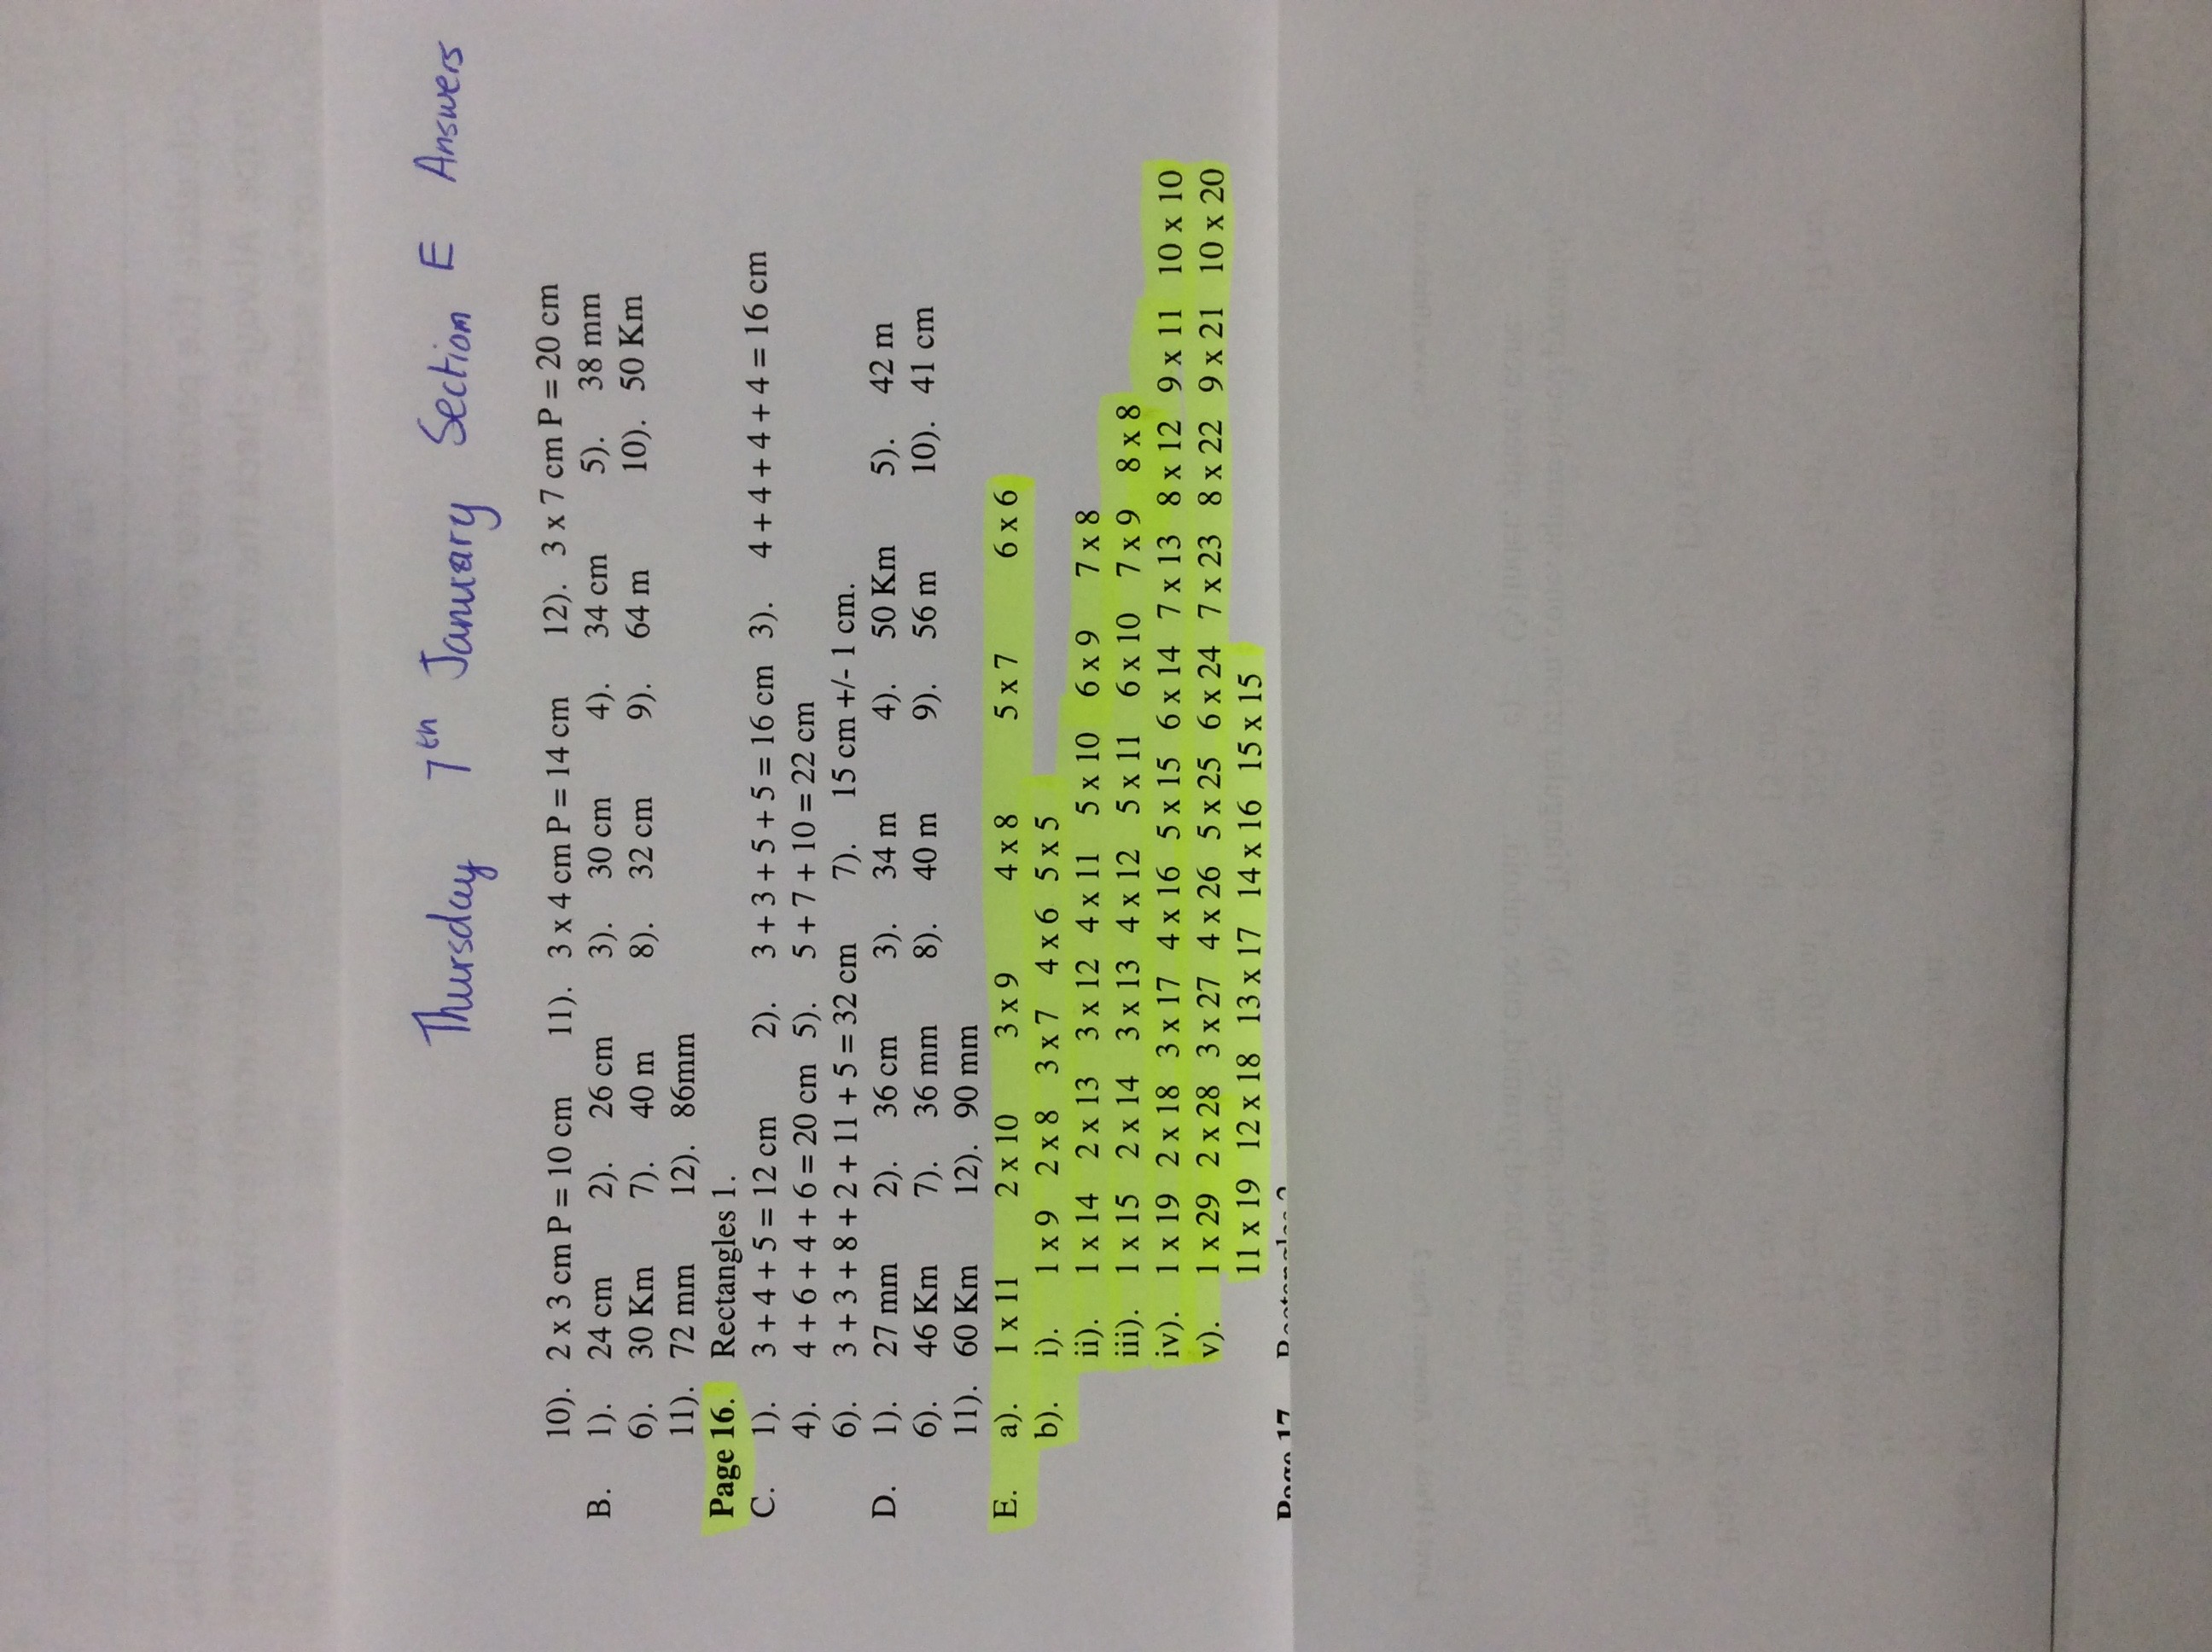 Thursday 7th January Section E Answers
10). 2 x 3 cm P = 10 cm 11). 3 x 4 cm P = 14 cm 12). 3 x 7 cm P = 20 cm
B. 1). 24 cm 2). 26 cm 3). 30 cm 4). 34 cm 5). 38 mm
6). 30 Km 7). 40 m 8). 32 cm 9). 64 m 10). 50 Km
11). 72 mm 12). 86mm
Page 16. Rectangles 1.
C. 1). 3 + 4 + 5 = 12 cm 2). 3 + 3 + 5 + 5 = 16 cm 3). 4 + 4 + 4 + 4 = 16 cm
4). 4 + 6 + 4 + 6 = 20 cm 5). 5 + 7 + 10 = 22 cm
6). 3 + 3 + 8 + 2 + 11 + 5 = 32 cm 7). 15 cm +/- 1 cm.
D. 1). 27 mm 2). 36 cm 3). 34 m 4). 50 Km 5). 42 m
6). 46 Km 7). 36 mm 8). 40 m 9). 56 m 10). 41 cm
11). 60 Km 12). 90 mm
E. a). 1 x 11 2 x 10 3 x 9 4 x 8 5 x 7 6 x 6
b). i). 1 x 9 2 x 8 3 x 7 4 x 6 5 x 5
ii). 1 x 14 2 x 13 3 x 12 4 x 11 5 x 10 6 x 9 7 x 8
iii). 1 x 15 2 x 14 3 x 13 4 x 12 5 x 11 6 x 10 7 x 9 8 x 8
iv). 1 x 19 2 x 18 3 x 17 4 x 16 5 x 15 6 x 14 7 x 13 8 x 12 9 x 11 10 x 10
v). 1 x 29 2 x 28 3 x 27 4 x 26 5 x 25 6 x 24 7 x 23 8 x 22 9 x 21 10 x 20
11 x 19 12 x 18 13 x 17 14 x 16 15 x 15
Page 17 Rectangles 2